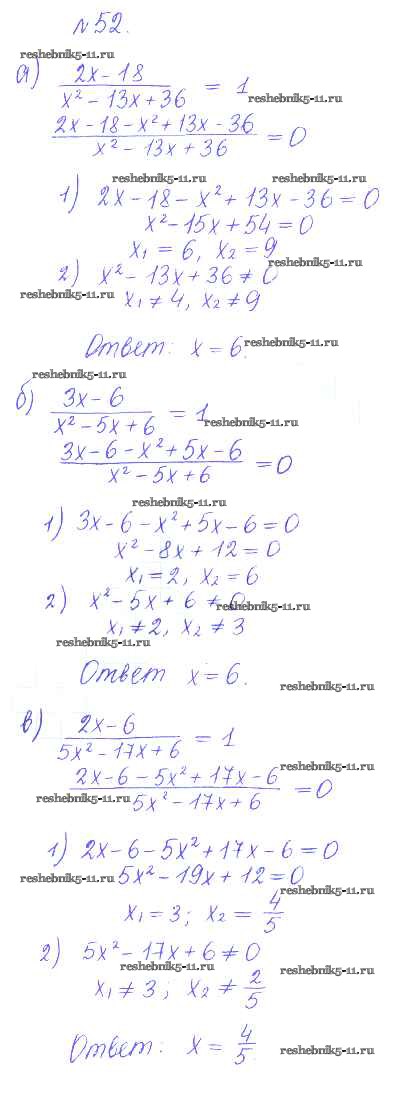 №52.
reshebnik5-11.ru
а) (2x-18)/(x²-13x+36) = 1
reshebnik5-11.ru
(2x-18-x²+13x-36)/(x²-13x+36) = 0
reshebnik5-11.ru reshebnik5-11.ru
1) 2x-18-x²+13x-36=0
x²-15x+54=0
x₁=6, x₂=9
reshebnik5-11.ru
2) x²-13x+36≠0
reshebnik5-11.ru
x₁≠4, x₂≠9
Ответ: x=6.
reshebnik5-11.ru
reshebnik5-11.ru
б) (3x-6)/(x²-5x+6) = 1
reshebnik5-11.ru
(3x-6-x²+5x-6)/(x²-5x+6) = 0
reshebnik5-11.ru
1) 3x-6-x²+5x-6=0
x²-8x+12=0
x₁=2, x₂=6
2) x²-5x+6≠0
reshebnik5-11.ru
x₁≠2, x₂≠3
reshebnik5-11.ru
Ответ x=6.
reshebnik5-11.ru
в) (2x-6)/(5x²-17x+6) = 1
reshebnik5-11.ru
(2x-6-5x²+17x-6)/(5x²-17x+6) = 0
reshebnik5-11.ru
1) 2x-6-5x²+17x-6=0
reshebnik5-11.ru
5x²-19x+12=0
reshebnik5-11.ru
x₁=3; x₂=4/5
2) 5x²-17x+6≠0
reshebnik5-11.ru reshebnik5-11.ru
x₁≠3; x₂≠2/5
Ответ: x=4/5.
reshebnik5-11.ru